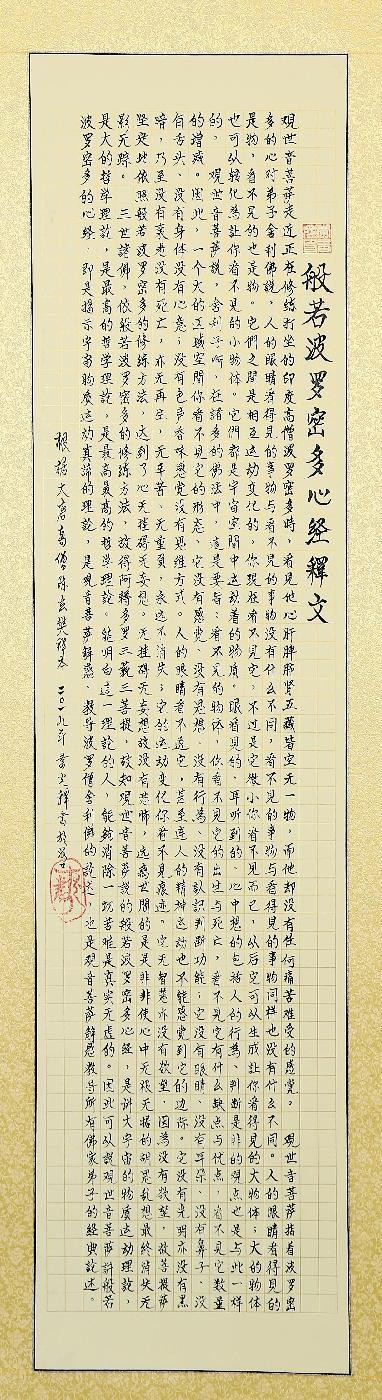 般若波罗密多心经释文
观世音菩萨走近正在修练打坐的印度高僧波罗密多时，看见他心肝脾肺肾五藏皆空无一物，而他却没有任何痛苦难受的感觉。 观世音菩萨指着波罗密
多的心对弟子舍利佛说，人的眼睛看得见的事物与看不见的事物没有什么不同，看不见的事物与看得见的事物同样也没有什么不同。人的眼睛看得见的
是物，看不见的也是物。它们之间是相互运动变化的，你现在看不见它，不过是它微小你看不见而已，从后它可以生成让你看得见的大物体；大的物体
也可以转化为让你看不见的小物体。它们都是宇宙空间中运动着的物质。眼看见的，耳听到的，心中想的包括人的行为、判断是非的观点也是与此一样
的。 观世音菩萨说，舍利子啊，在诸多的佛法中，这是要旨：看不见的物体，你看不见它的出生与死亡，看不见它有什么缺点与优点，看不见它数量
的增减。因此，一个大的区域空间你看不见它的形态，它没有感觉、没有思想、没有行为、没有认识判断功能；它没有眼睛、没有耳朵、没有鼻子、没
有舌头、没有身体没有心意；没有色声香味感觉没有思维方式。人的眼睛看不透它，甚至连人的精神运动也不能感觉到它的边际。它没有光明亦没有黑
暗，乃至没有衰老没有死亡，亦无再生，无辛苦、无重负，永远不消失；它的运动变化你看不见痕迹。它无智慧亦没有欲望，因为没有欲望，故菩提萨
坚定地依照般若波罗密多的修练方法，达到了心无挂碍无妄想。无挂碍无妄想故没有悲怖，远离世间的是是非非使心中无根无据的胡思乱想最终消失无
影无踪。 三世诸佛，依般若波罗密多的修练方法，故得阿耨多罗三藐三菩提，故知观世音菩萨说的般若波罗密多心经，是讲大宇宙的物质运动理论，
是大的哲学理论，是最高的哲学理论，是最高最高的哲学理论。能明白这一理论的人，能够消除一切苦难是真实无虚的。因此可以说观世音菩萨讲般若
波罗密多的心经，即是揭示宇宙物质运动真谛的理论，是观音菩萨解惑、教导波罗僧舍利佛的论文，也是观音菩萨解惑教导所有佛家弟子的经典论述。
根据大唐高僧陈玄奘译本 二〇一九年